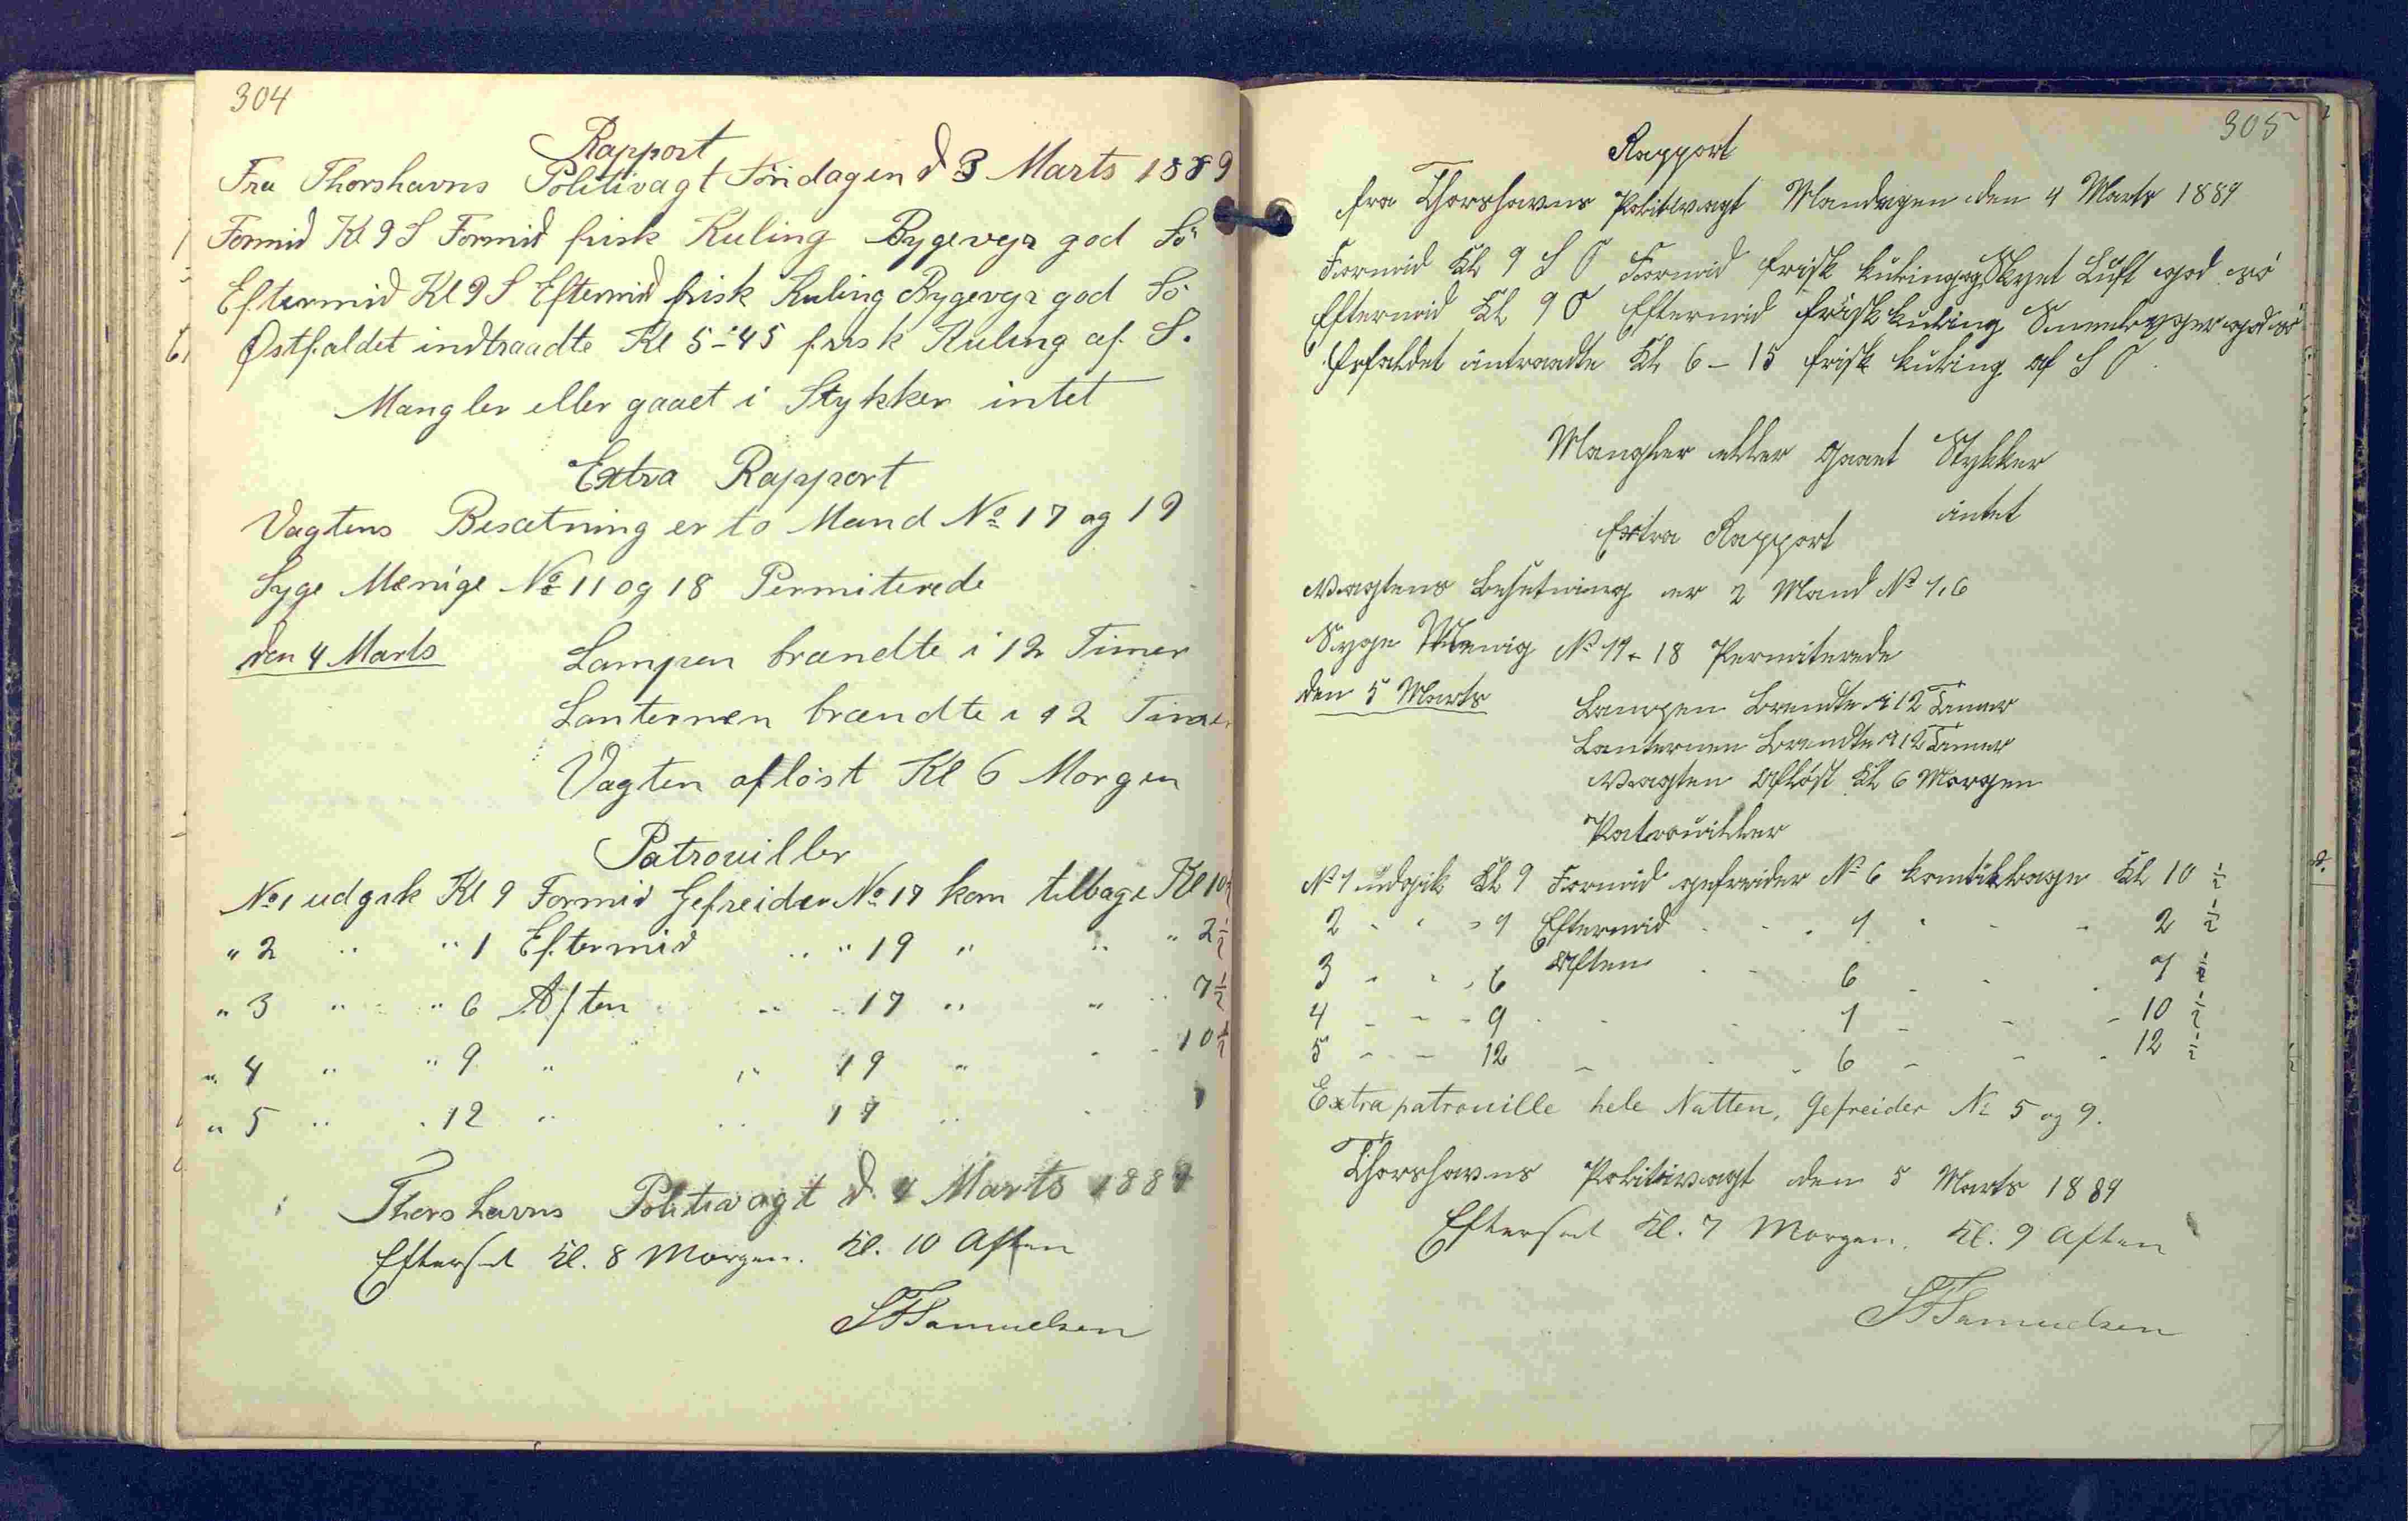 304
Rapport
Fra Thorshavns Politivagt Söndagen d 3 Marts 1889
Formid Kl 9 S Formid frisk Kuling Bygevejr god Sö
Eftermid Kl 9 S Eftermid frisk Kuling Bygevejr god Sö
Østfaldet indtraadte Kl 5-45 frisk Kuling af S.
Mangler eller gaaet i Stykker intet
Extra Rapport
Vagtens Besætning er to Mand No 17 og 19
Syge Menige No 11 og 18 Permiterede
den 4 Marts Lampen brændte i 12 Timer
Lanternen brændte i 12 Timer
Vagten aflöst Kl 6 Morgen
Patrouiller
No 1 udgik Kl 9 Formid Gefreider No 17 kom tilbage Kl 10½
" 2 " " 1 Eftermid " " 19 " " " 2½
" 3 " " 6 Aften " " 17 " " " 7½
" 4 " " 9 " " 19 " " " 10½
" 5 " " 12 " " 17 " "
Thorshavns Politivagt d. 4 Marts 1889
Efterset Kl. 8 Morgen. Kl. 10 Aften
SFSamuelsen
305
Rapport
fra Thorshavns Politivagt Mandagen den 4 Marts 1889
Formid Kl 9 S O Formid frisk kuling og Skyet Luft god sö
Eftermid Kl 9 O Eftermid frisk kuling Sneebyger god sö
Esfaldet intraadte Kl 6-15 frisk kuling af S O
Mangler eller gaaet Stykker
intet
Extra Rapport
Vagtens Besetning er 2 Mand No 1, 6
Syge Menig No 11 - 18 Permiterede
den 5 Marts Lampen Brendte i 12 Timer
Lanternen Brendte i 12 Timer
Vagten Aflöst Kl 6 Morgen
Patrouiller
No 1 udgik Kl 9 Formid gefreider No 6 kom tilbage Kl 10 ½
2 - - - 1 Eftermid - - - 1 - - - 2 ½
3 - - - 6 Aften - - 6 - - - 7 ½
4 - - - 9 - - - 1 - - - 10 ½
5 - - - 12 - - - 6 - - - 12 ½
Extra patrouille hele Natten, Gefreider No 5 og 9.
Thorshavns Politivagt den 5 Marts 1889
Efterset Kl. 7 Morgen. Kl. 9 Aften
SFSamuelsen